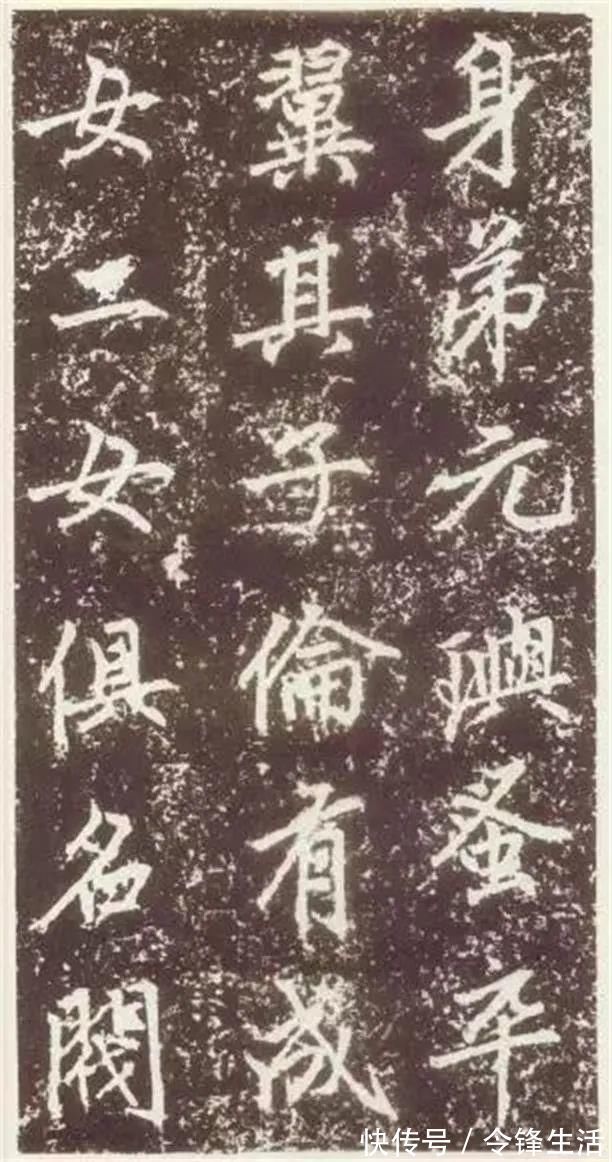 身弟元璵蚤卒
翼其子倫有成
女二女俱名閥
快传号 / 令锋生活